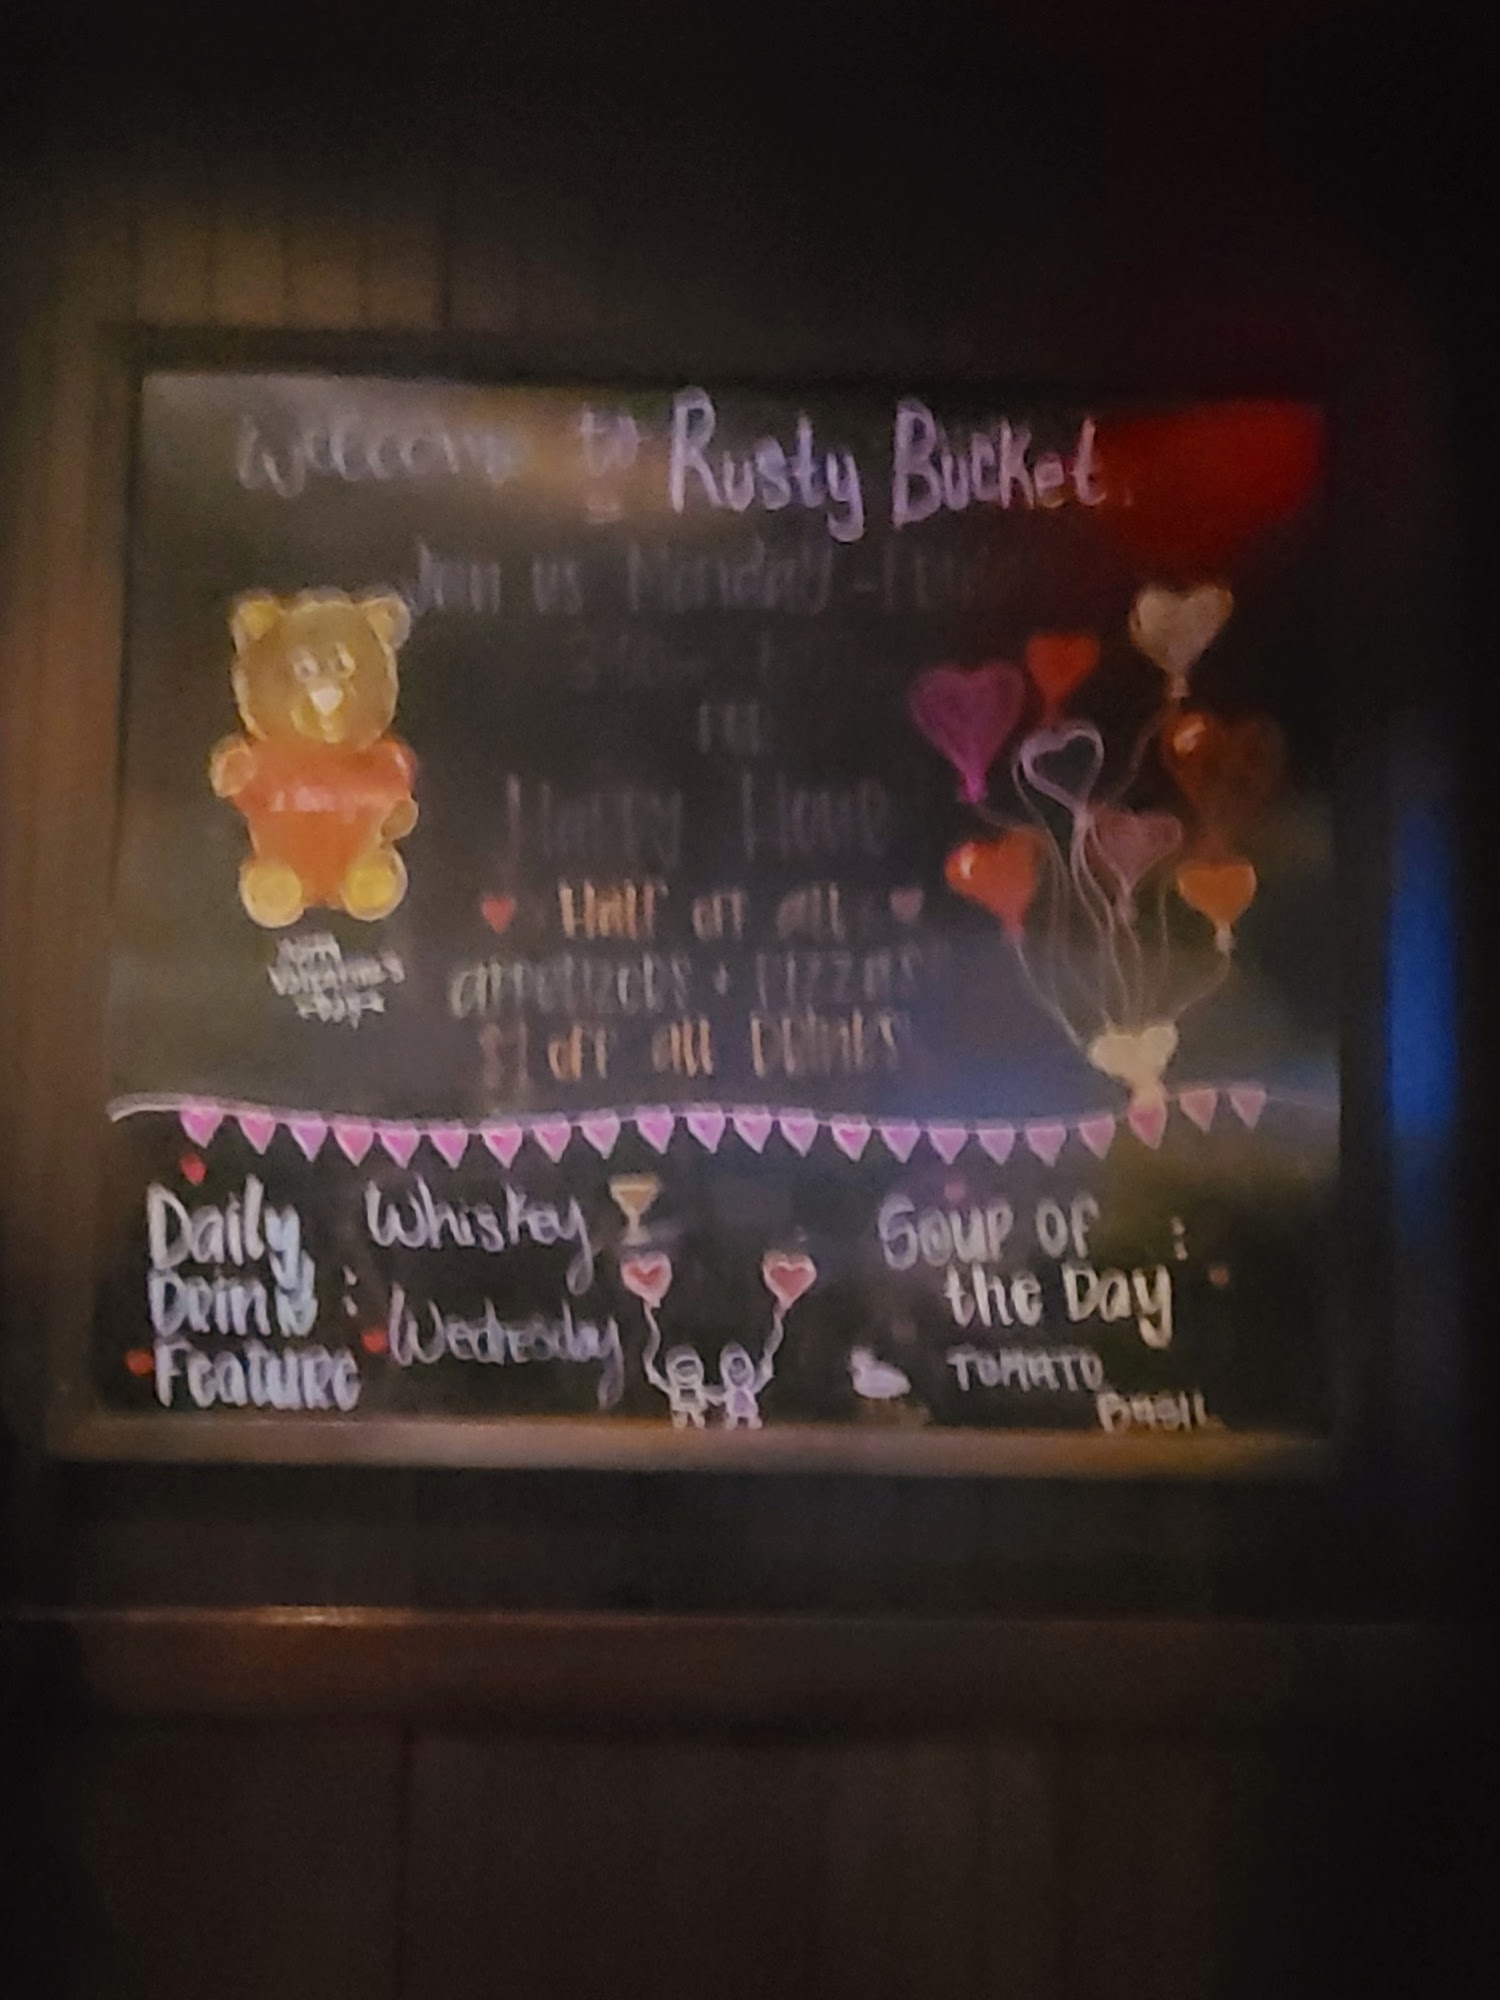 Welcome to Rusty Bucket
Join us Monday -
for
Happy Hour
Half off all
appetizers + Pizzas
$1 off all Drinks
Valentine's
Daily
Drink :
Feature
Whiskey
Wednesday
Soup of :
the Day
TOMATO
BASIL